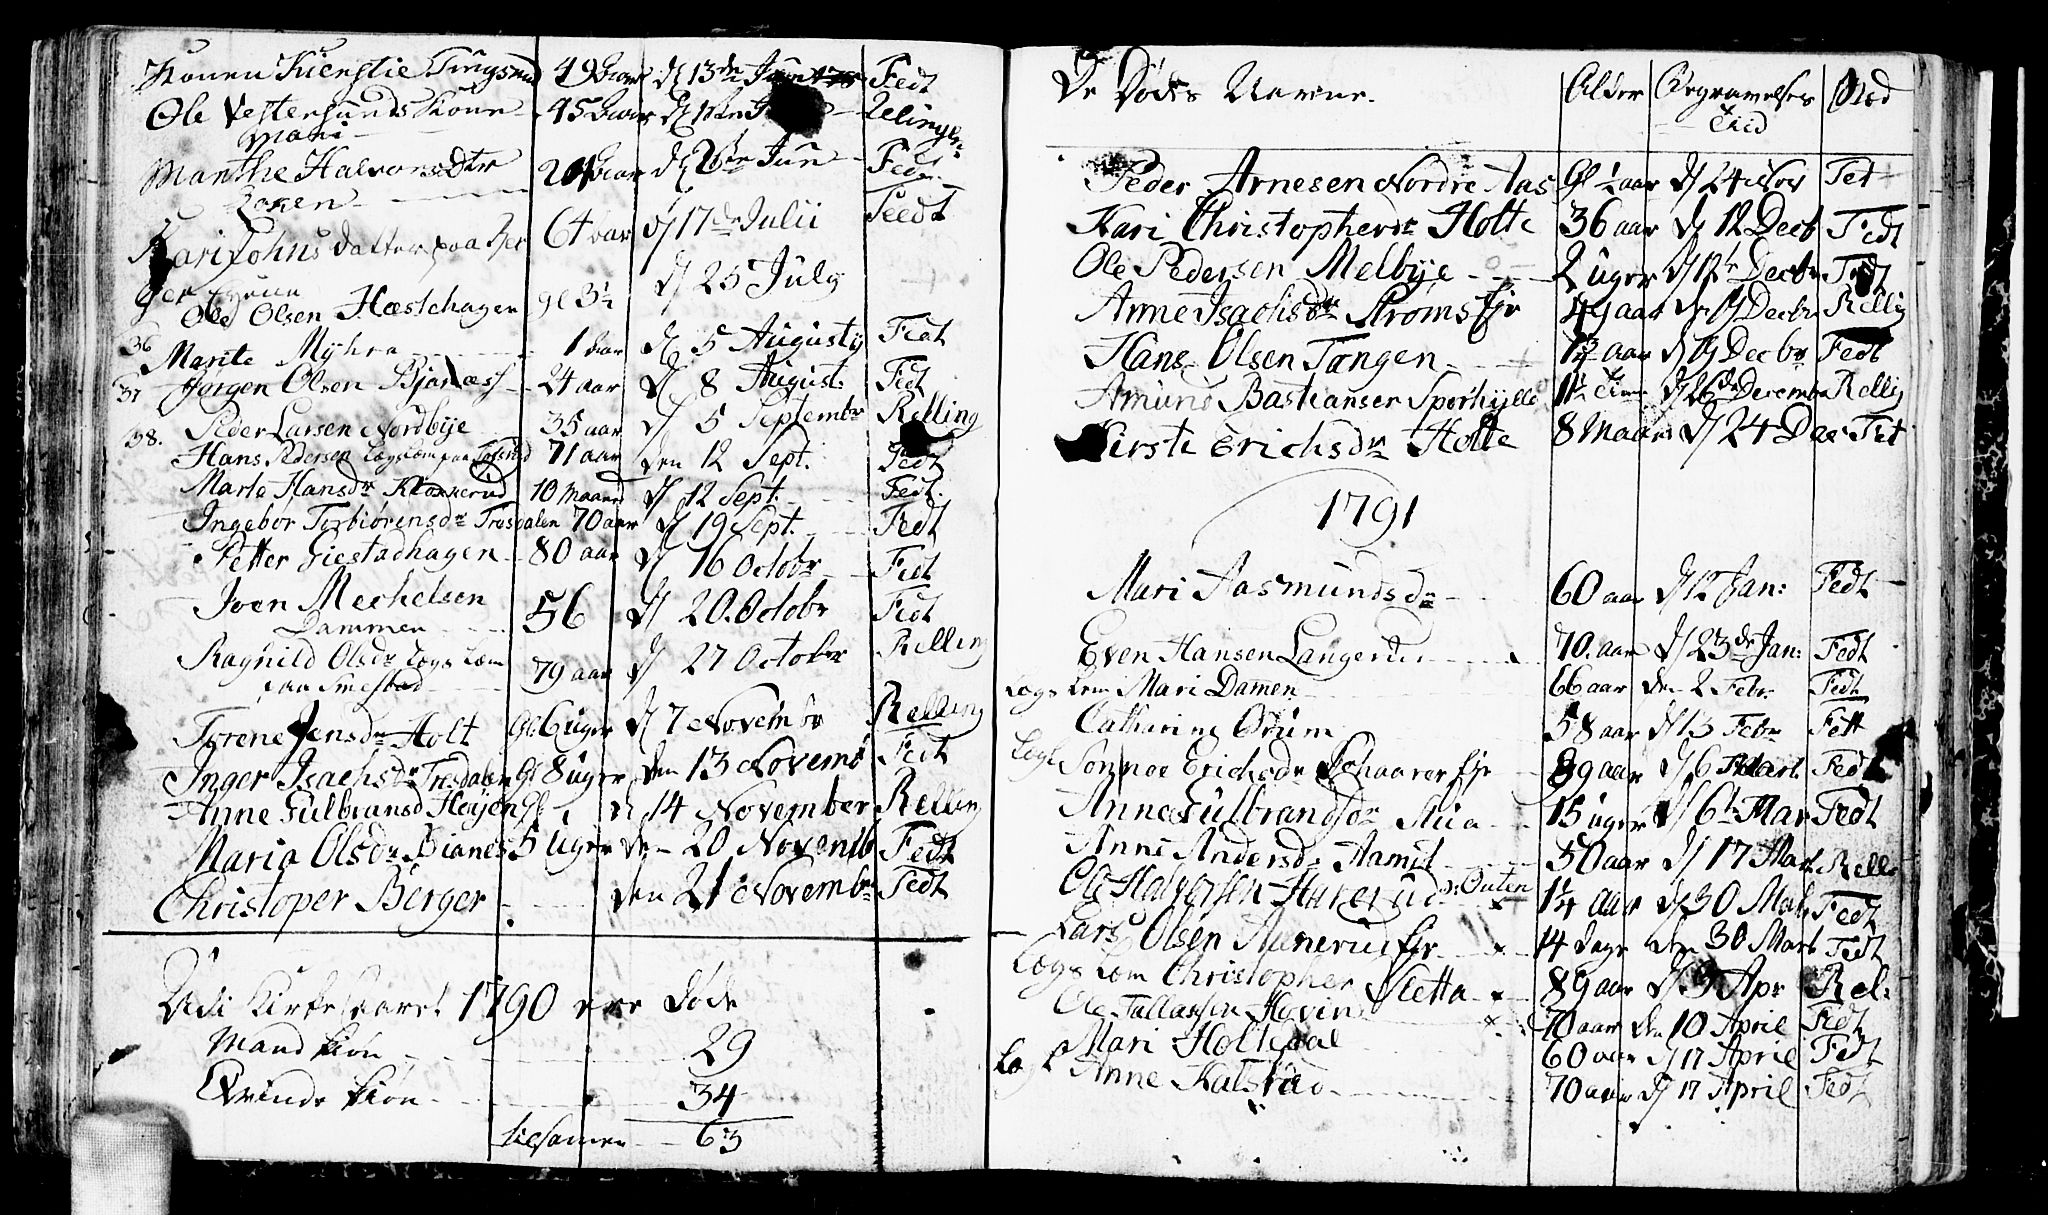 Konen Kierstie 49 aar d 13de Fedt
Ole Vestersunds Kone 45 aar
Mari
Marthe Halvorsdtr 20 aar d 26de Jun Fedt
Kari Johnsdatter paa Ber 64 aar d 17de Julii Feedt
ger Eyeiii
Ole Olsen Hæstehagen gl 3½ d 25 July
36 Marite Myhra 1 aar d 5 Augustij Fedt
37 Jørgen Olsen Bjonæss 24 aar d 8 August Fedt
38. Peder Larsen Nordbÿe 35 aar d 5 Septembr Relling
Hans Pedersen Lægslæm paa 71 aar den 12 Sept. Fedt
Marte Hansdr Klokkerud 10 maaned d 12 Sept. Fedt.
Ingebor Torbiørensdr Trosdalen 70 aar d 19 Sept. Fedt
Petter Giestadhagen 80 aar d 16 Octobr Fedt
Joen Mechelsen 56 d 20. Octobr Fedt
Dammen
Ragnild Olsdr Lægs Læm 79 aar d 27 Octobr Relling
paa Smestad
Torene Jensdr Holt Gl. 6 uger d 7 Novembr Relling
Inger Isachsdr Trosdalen Gl 8 uger den 13 Novemb Fedt
Anne Gulbransd Heyen Gl d 14 November Relling
Maria Olsdr Bianes 5 Uger den 20 Novemb Fedt
Christoper Berger den 21 Novembr Fedt
Udi Kirke aaret 1790 ere døde
Mand kiøn 29
Qvinde kiøn 34
tilsamen 63
De Dødes Navne. Alder Begravelses Stæd
Tiid
Peder Arnesen Nordre Aas Gl ½ aar d 24 Nov Fet
Kari Christopherdr Holte 36 aar d 12 Decb Fedt
Ole Pedersen Melbÿe 2 uger d 12te Decbr Fedt
Anne Isachsdr Strøms Eje 49 aar Decbr Rellig
Hans Olsen Tangen aar d 19 Decbr Fedt
Amund Bastiansen Spørhylle d 26de Decemb Rellig
Kirsti Erichsdr Holte 8 Maan d 24 Dec Fet
1791
Mari Aasmundsdr 60 aar d 12 Jan: Fedt
Even Hansen Langerud 70. aar d 23de Jan: Fedt
Lægs Lem Mari Damen 66 aar den 2 Febr Fedt
Catharine Ørum 58 aar d 13 Febr Fett
Lægl Sønnoe Erichsdr Skaarer Eje 89 aar d 6 Mart Fedt
Anne Gulbrandsdr Riia 15 uger d 6t Mar Fedt
Anne Andersdr 50 aar d 17 Mart Rell
Ole Halvorsen Hakerud 1¼ aar d 30 Mart Fedt
Lars Olsen Aanerud Eje 14 dage den 30 Mart Fedt
Lægs Læm Christopher Sletta 89 aar d 9 Apr Rel:
Ole Tallagsen Hovin 70 aar den 10 April Fedt
Mari Holtedal 60 aar d 17 April Fedt
Lægl Anne Kalstad 70 aar d 17 April Fedt